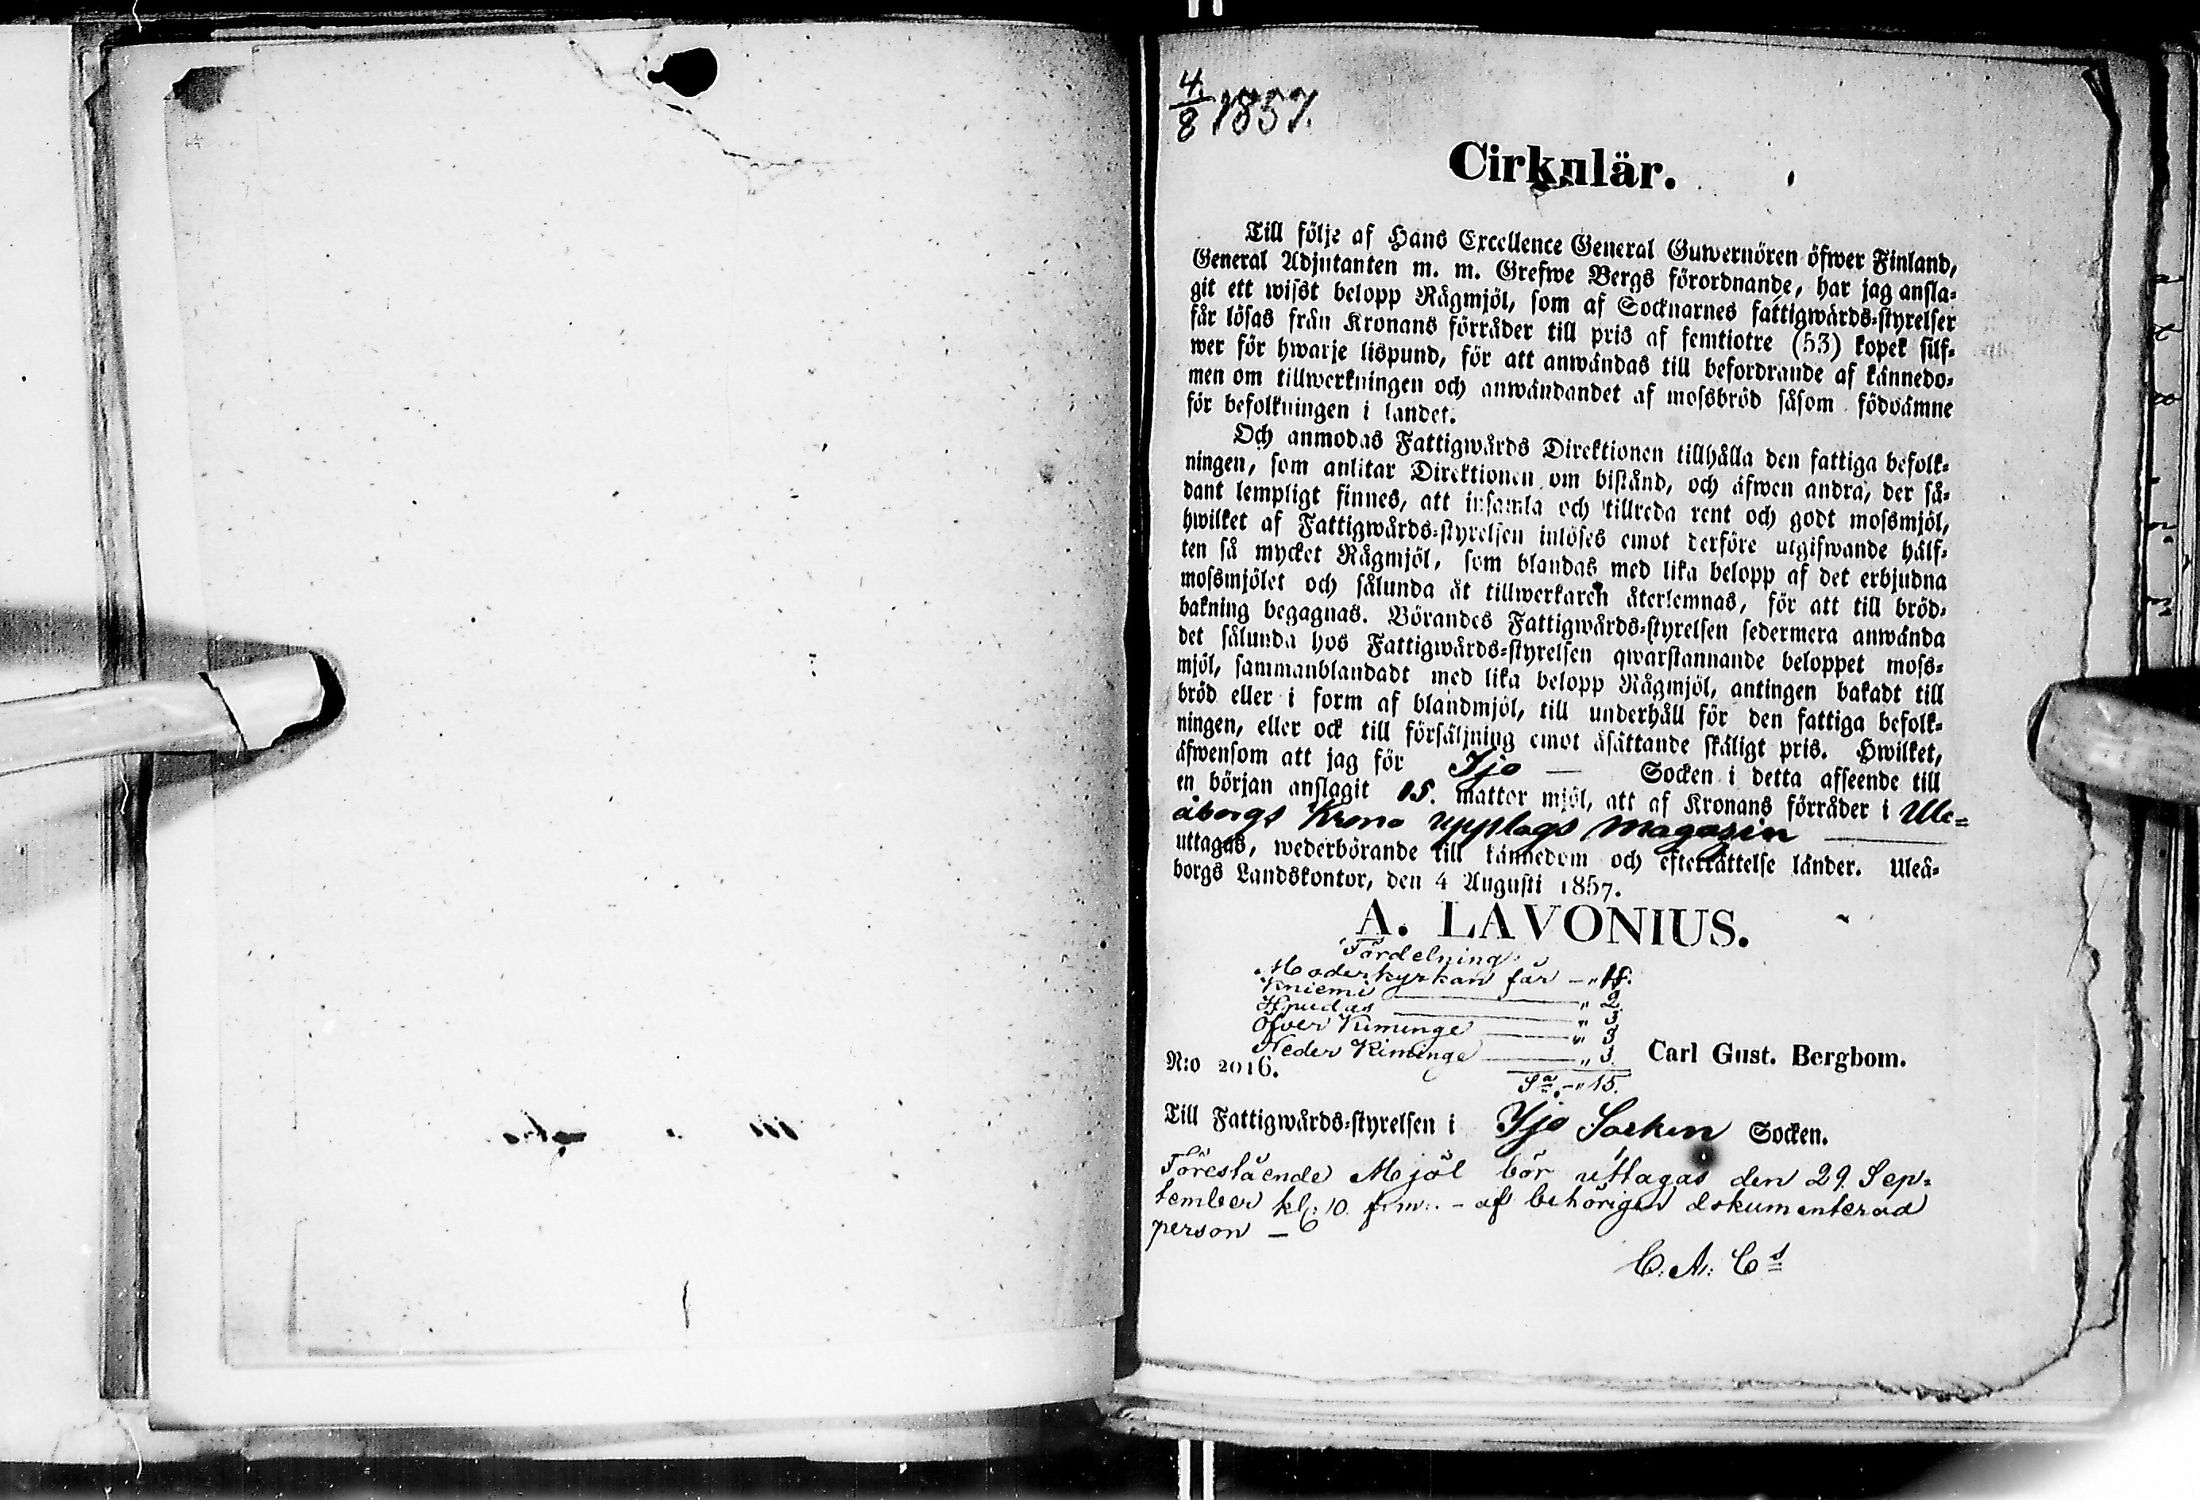 4/8 1857.
Cirkulär.
Till följe af Hans Excellence General Guwernören öfwer Finland,
General Adjutanten m. m. Grefwe Bergs förordnande, har jag ansla-
git ett wisst belopp Rågmjöl, som af Socknarnes fattigwårds-styrelser
får lösas från Kronans förråder till pris af femtiotre (53) kopek silf-
wer för hwarje lispund, för att anwändas till befordrande af kännedo-
men om tillwerkningen och anwändandet af mossbröd såsom födoämne
för befolkningen i landet.
Och anmodas Fattigwårds Direktionen tillhålla den fattiga befolk-
ningen, som anlitar Direktionen om bistånd, och äfwen andra, der så-
dant lempligt finnes, att insamla och tillreda rent och godt mossmjöl,
hwilket af Fattigwårds-styrelsen inlöses emot derföre utgifwande hälf-
ten så mycket Rågmjöl, som blandas med lika belopp af det erbjudna
mossmjölet och sålunda åt tillwerkaren återlemnas, för att till bröd-
bakning begagnas. Börandes Fattigwårds-styrelsen sedermera anwända
det sålunda hos Fattigwårds-styrelsen qwarstannande beloppet moss-
mjöl, sammanblandadt med lika belopp Rågmjöl, antingen bakadt till
bröd eller i form af blandmjöl, till underhåll för den fattiga befolk-
ningen, eller ock till försäljning emot åsättande skäligt pris. Hwilket,
äfwensom att jag för Ijo — Socken i detta afseende till
en början anslagit 15. mattor mjöl, att af Kronans förråder i Ule=
åborgs Krono upplags magasin —
uttagas, wederbörande till kännedom och efterrättelse länder. Uleå-
borgs Landskontor, den 4 Augusti 1857.
A. LAVONIUS.
Fördelning:
Moderkyrkan får — " 4.
Kniemi — " 2
Hpudas — " 3
Öfver Kiminge — " 3
Neder Kiminge — " 3.
Carl Gust. Bergbom.
N:o 2016.
Sa — " 15.
Till Fattigwårds-styrelsen i Ijo Socken Socken.
Förestående Mjöl bör uttagas den 29. Sep=
tember kl: 10. f.m: - af behörigen dokumenterad
person —
C. A. Cd